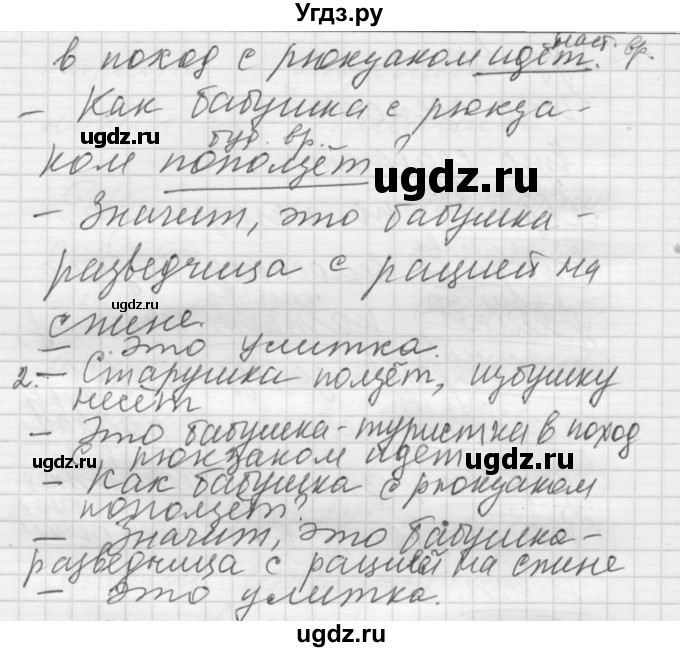 Угдз.ру
в поход с рюкзаком идёт. наст. вр.
– Как бабушка с рюкза-
буд. вр.
ком поползёт?
– Значит, это бабушка-
разведчица с рацией на
спине.
– Это улитка.
2. – Старушка ползёт, избушку
несёт
– Это бабушка-туристка в поход
с рюкзаком идёт
– Как бабушка с рюкзаком
поползёт?
– Значит, это бабушка-
разведчица с рацией на спине
– Это улитка.
ugdz.ru
ugdz.ru
ugdz.ru
ugdz.ru
ugdz.ru
ugdz.ru
ugdz.ru
ugdz.ru